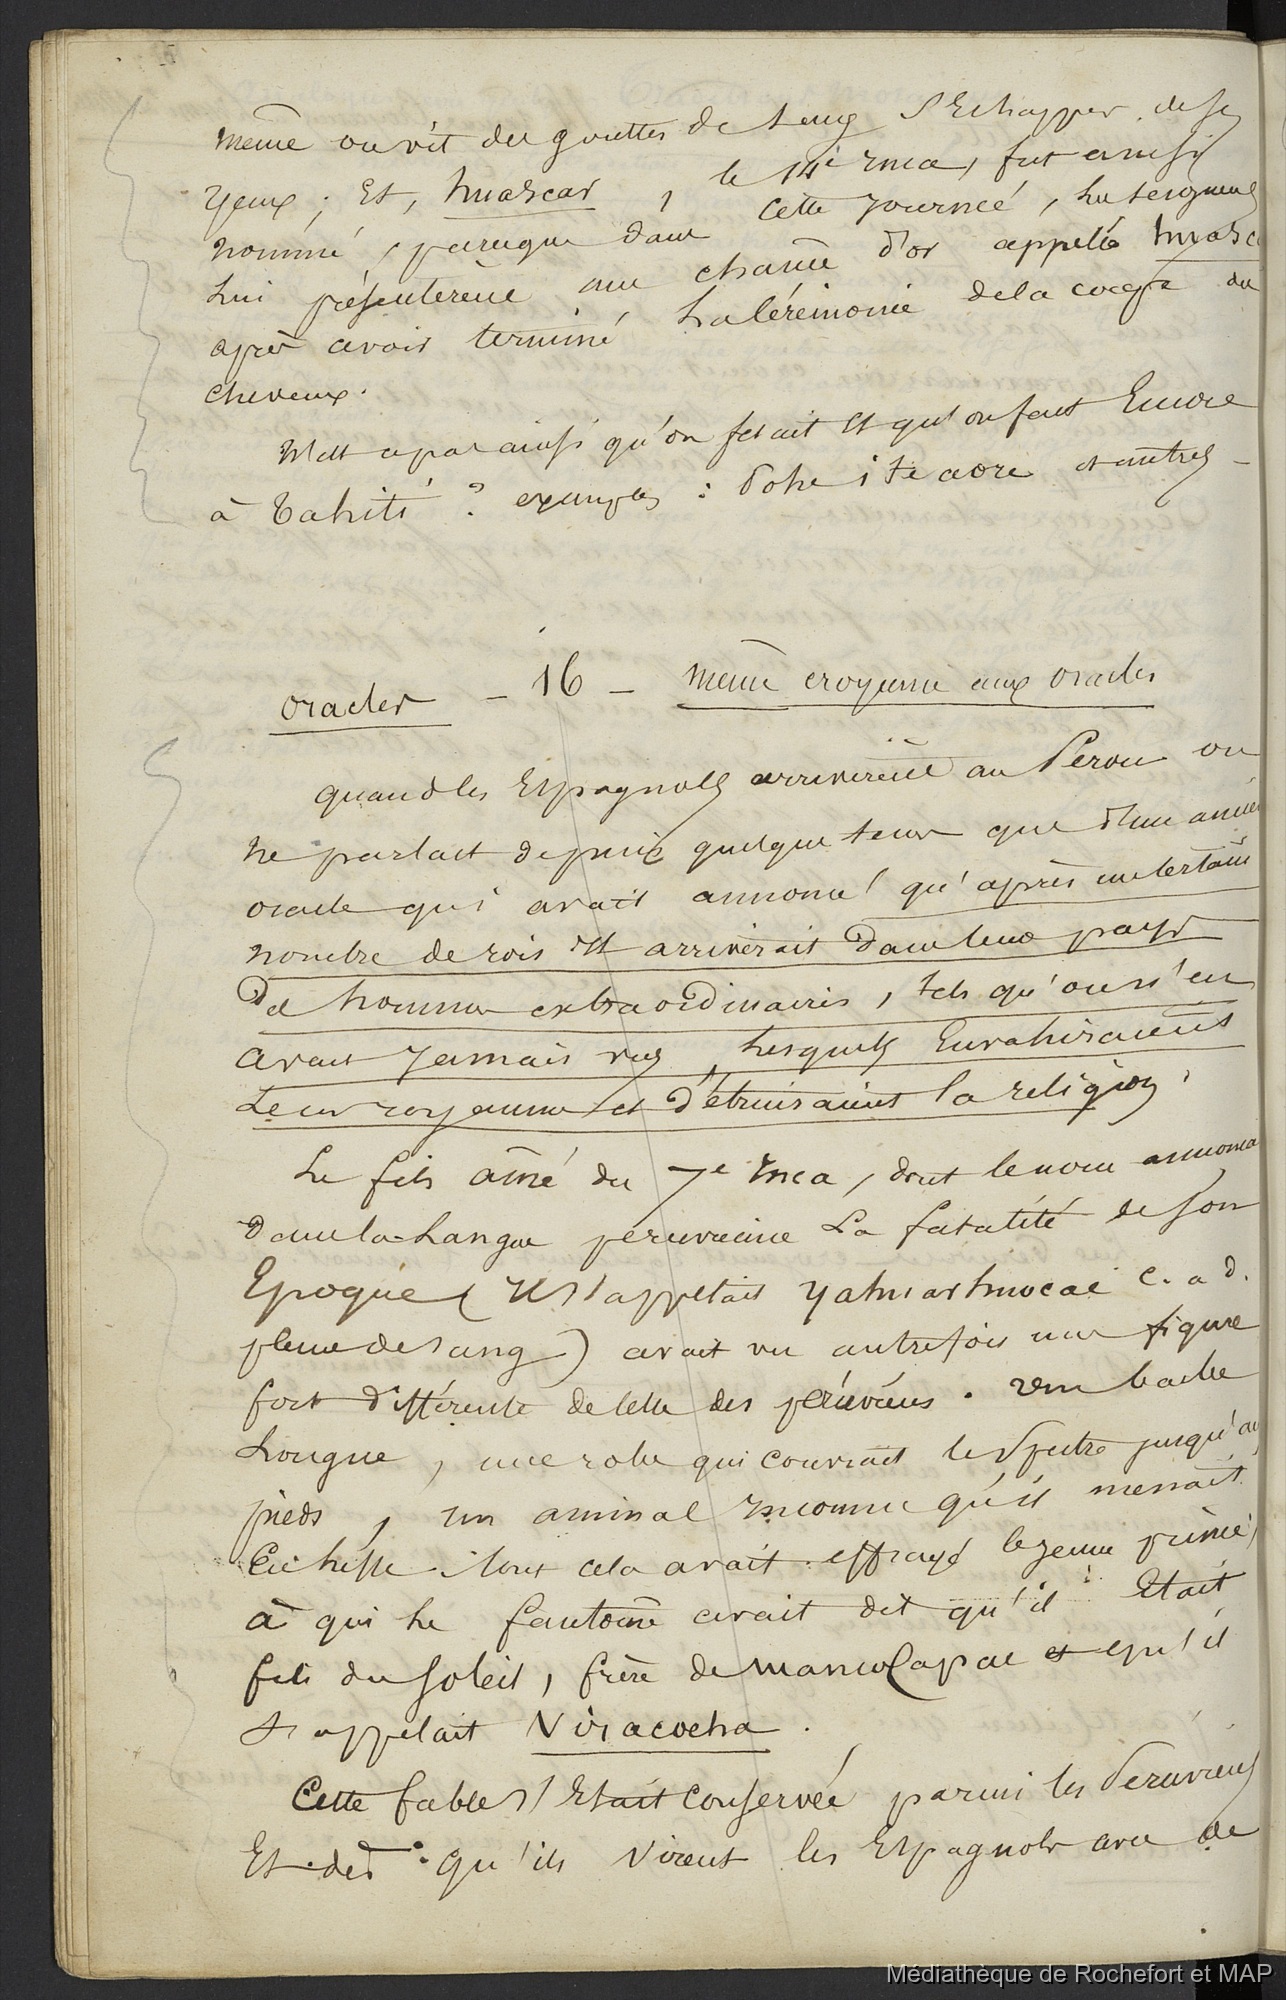 même on vit des gouttes de sang s'Echapper de ses
yeux ; Et, huascar, le 14e Inca, fut ainsi
nommé, parceque dans cette journée, les seigneurs
lui présentèrent une chaine d'or appelée huasca
après avoir terminé la cérémonie de la coupe des
cheveux.
N'est ce pas ainsi qu'on fesait et qu'on fait Encore
à Tahiti ? exemples : et autres
oracles - 16 - même croyance aux oracles
quand les Espagnols arrivèrent au Pérou on
ne parlait depuis quelque tems que d'un ancien
oracle qui avait annoncé qu'après un certain
nombre de rois Il arriverait dans leur pays
des hommes extraordinaires, tels qu'on n'en
avait jamais vus, lesquels Envahiraient
leur royaume et détruiraient la religion.
Le fils aîné du 7e Inca, dont le nom annonca
dans la Langue peruvienne la fatalité de son
Epoque (Il s'appelait yahuarhuocac c. a d.
pleure de sang) avait vu autrefois une figure
fort différente de celle des péruviens. une barbe
Longue, une robe qui couvrait le spectre jusqu'aux
pieds, un animal Inconnu qu'il menait
En lesse. tout cela avait effrayé le jeune prince,
à qui le fantome avait dit qu'il Etait
fils du soleil, frère de mancoCapac et qu'il
s'appelait Viracocha.
Cette fable s'Etait Conservée parmi les Peruviens
Et dès qu'ils virent les Espagnols avec de
Médiathèque de Rochefort et MAP